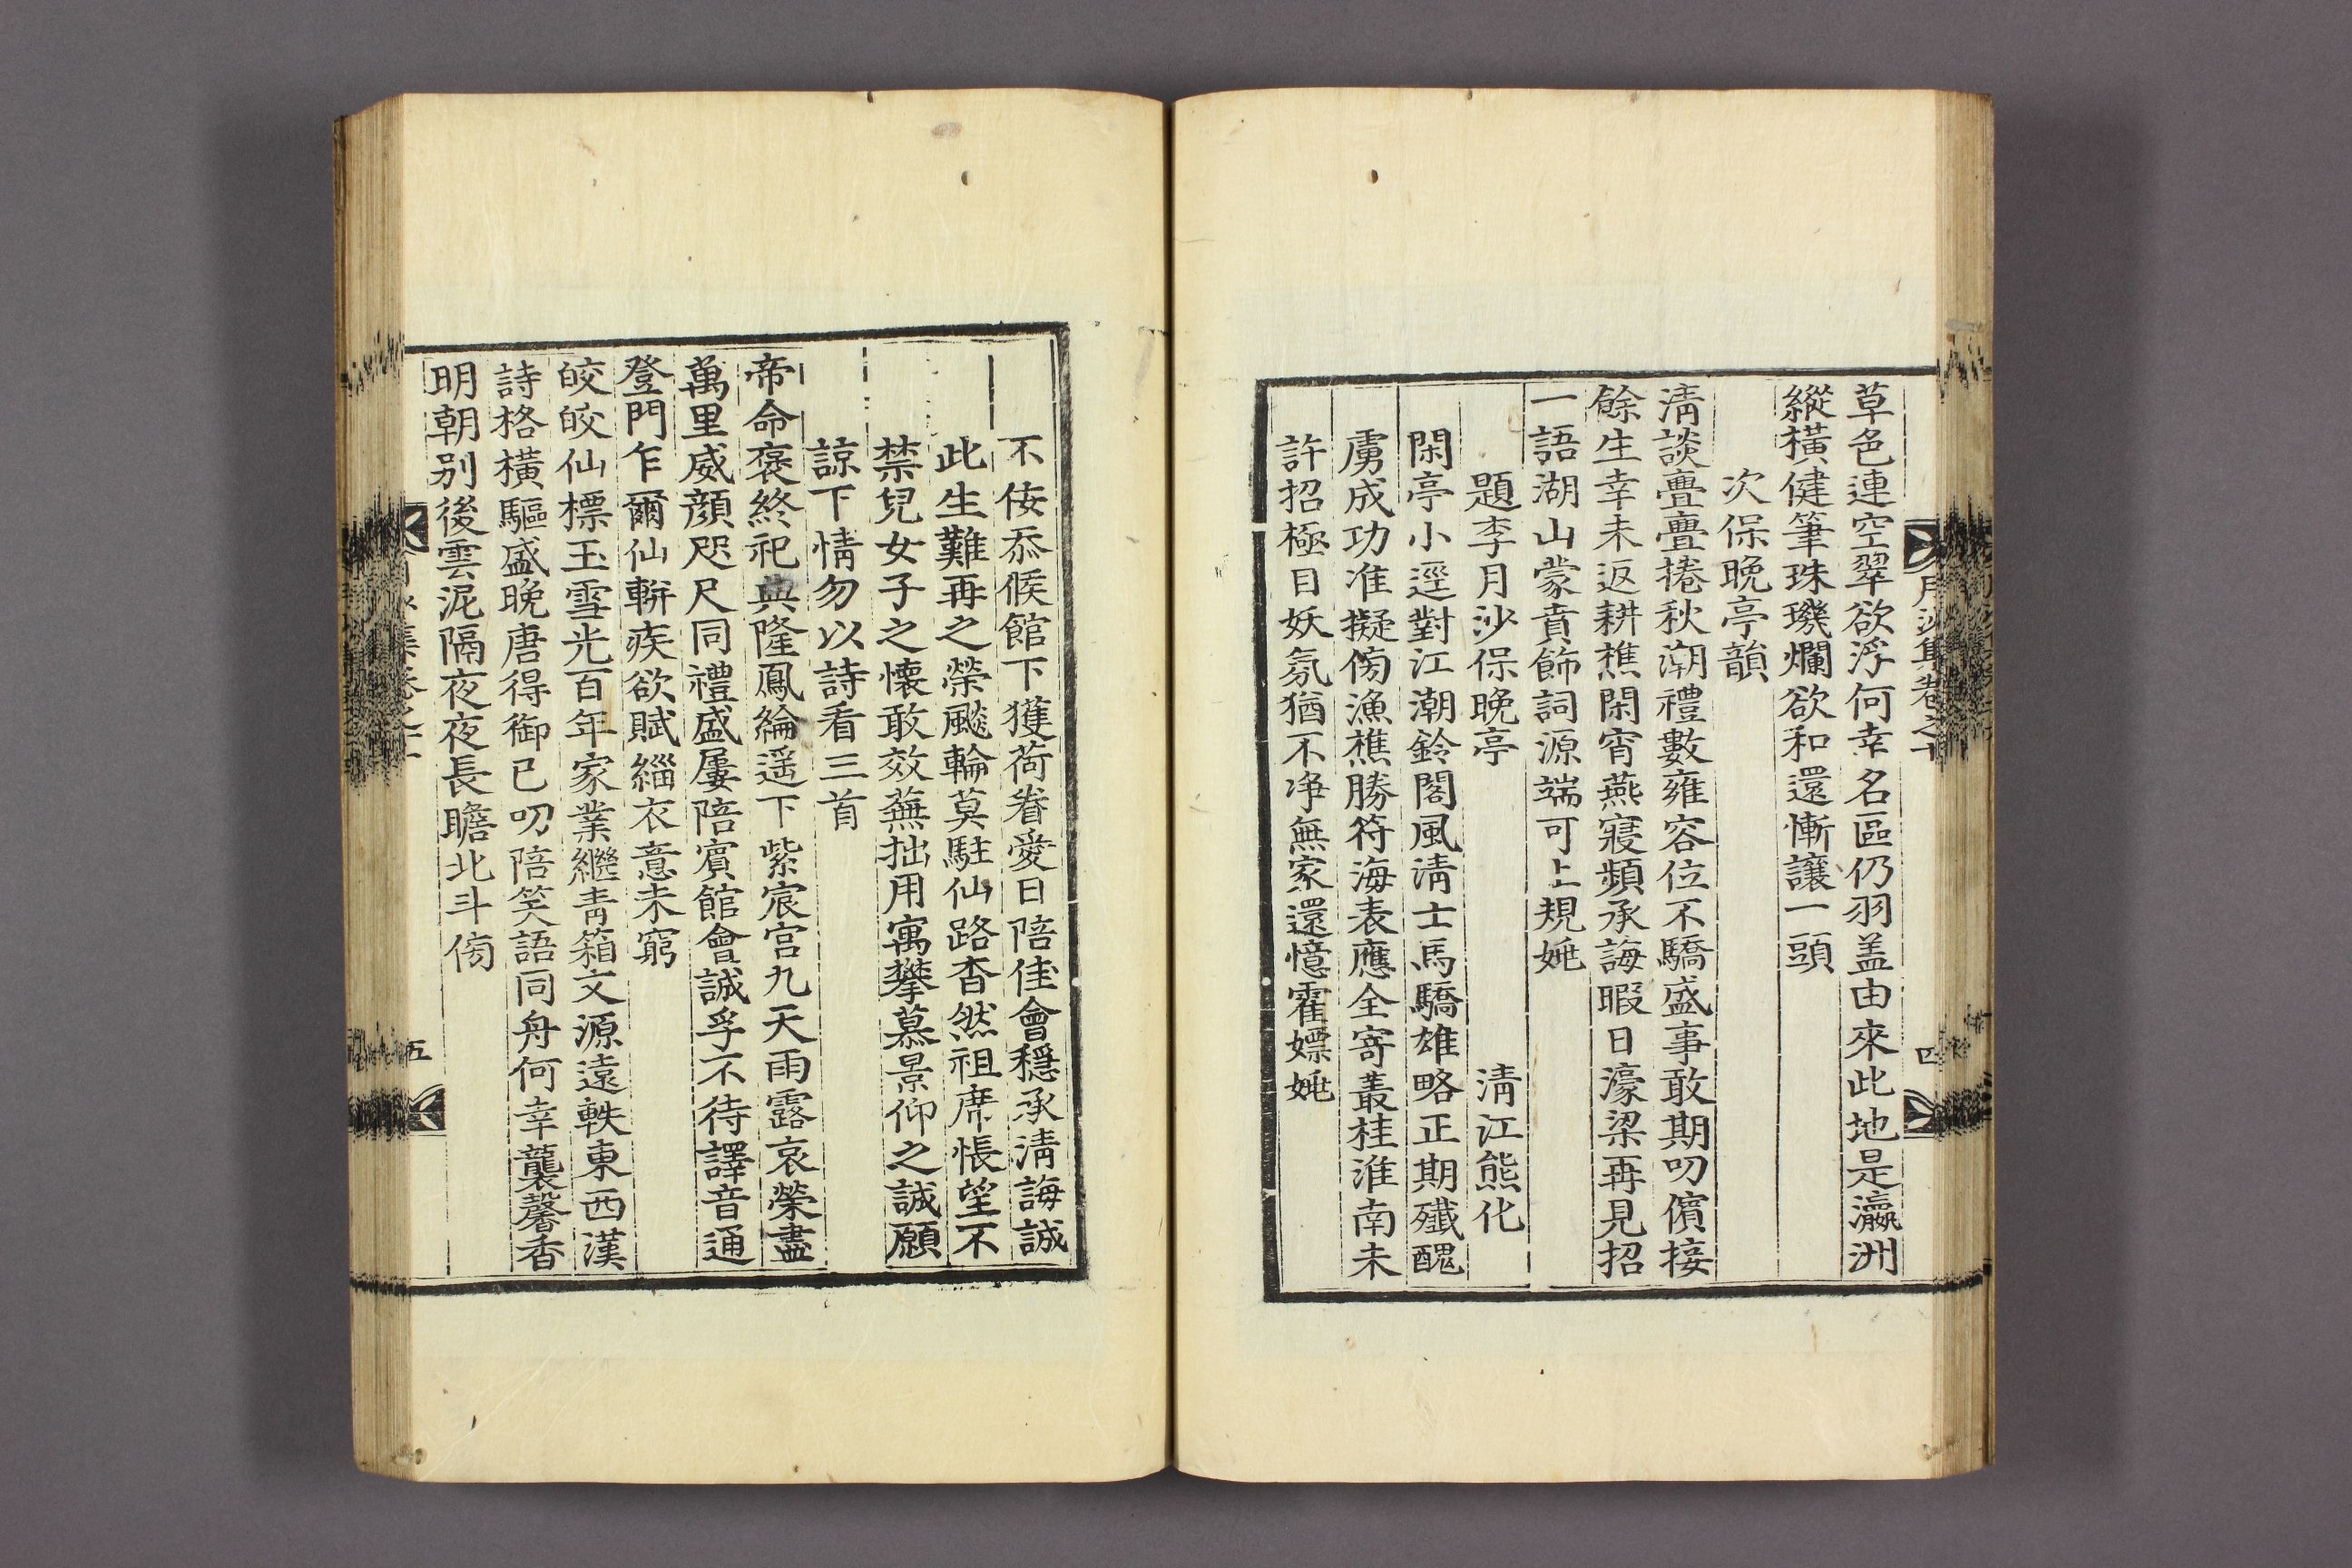 草色連空翠欲浮何幸名區仍羽盖由來此地是瀛洲
縱橫健筆珠璣爛欲和還慚讓一頭
次保晩亭韻
淸談亹亹捲秋潮禮數雍容位不驕盛事敢期叨儐接
餘生幸未返耕樵閑宵燕寢頻承誨暇日濠梁再見招
一語湖山蒙賁飾詞源端可上規姚
題李月沙保晩亭
淸江熊化
閑亭小逕對江潮鈴閣風淸士馬驕雄略正期殲醜
虜成功准擬傍漁樵勝符海表應全寄叢桂淮南未
許招極目妖氛猶不净無家還憶霍嫖姚
月沙集卷之十
四
不佞忝候館下獲荷眷愛日陪佳會穩承淸誨誠
此生難再之榮颷輪莫駐仙路杳然祖席悵望不
禁兒女子之懷敢效蕪拙用寓攀慕景仰之誠願
諒下情勿以詩看三首
帝命褒終祀典隆鳳綸遥下紫宸宫九天雨露哀榮盡
萬里威顔咫尺同禮盛屢陪賓館會誠孚不待譯音通
登門乍爾仙軿疾欲賦緇衣意未窮
皎皎仙標玉雪光百年家業繼靑箱文源遠軼東西漢
詩格橫驅盛晩唐得御已叨陪笑語同舟何幸襲馨香
明朝别後雲泥隔夜夜長瞻北斗傍
集卷之十
五